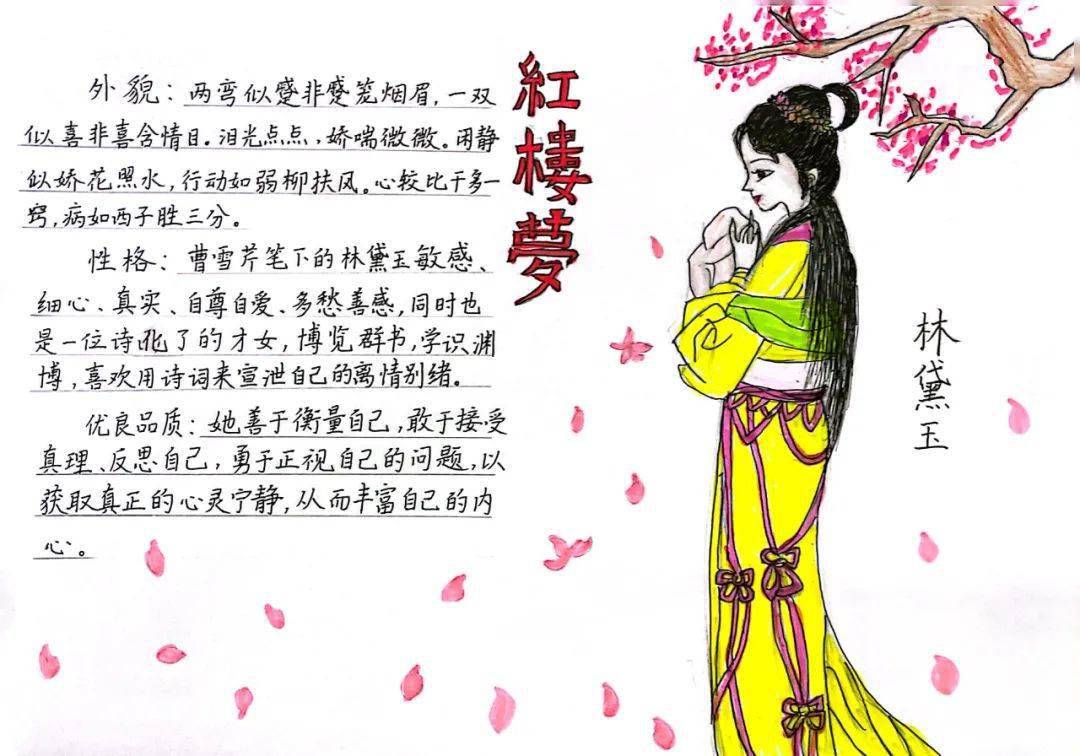 外貌：两弯似蹙非蹙笼烟眉，一双
似喜非喜含情目。泪光点点，娇喘微微。闲静
似娇花照水，行动如弱柳扶风。心较比干多一
窍，病如西子胜三分。
性格：曹雪芹笔下的林黛玉敏感、
细心、真实、自尊自爱、多愁善感，同时也
是一位诗化了的才女，博览群书，学识渊
博，喜欢用诗词来宣泄自己的离情别绪。
优良品质：她善于衡量自己，敢于接受
真理、反思自己，勇于正视自己的问题，以
获取真正的心灵宁静，从而丰富自己的内
心。
紅樓夢
林黛玉